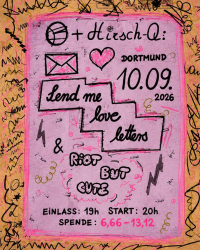 + Hirsch-Q:
DORTMUND
10.09.
2026
Send me
love
letters
&
RiOT
BUT
CUTE
EINLASS: 19h START: 20h
SPENDE: 6,66 - 13,12